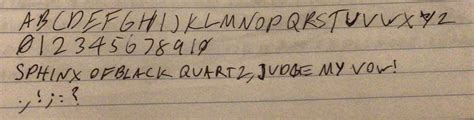 ABCDEFGHIJKLMNOPQRSTUVWXYZ
012345678910
SPHINX OF BLACK QUARTZ, JUDGE MY VOW!
.,!;:?